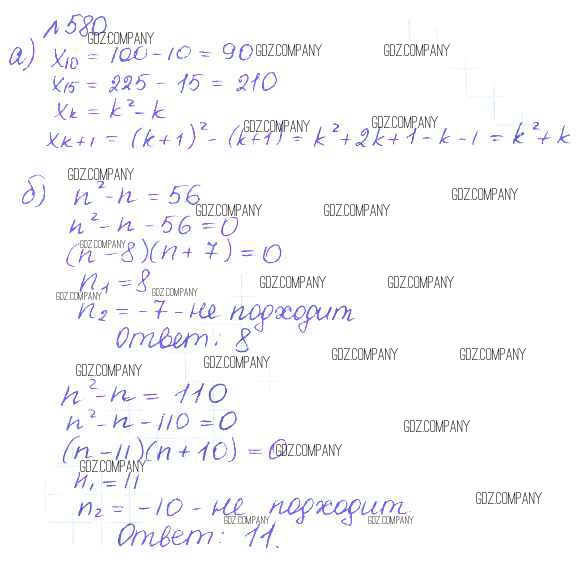 №580.
GDZ.COMPANY
а) x10 = 100 - 10 = 90 GDZ.COMPANY GDZ.COMPANY
x15 = 225 - 15 = 210
xk = k² - k
GDZ.COMPANY GDZ.COMPANY
xk+1 = (k+1)² - (k+1) = k² + 2k + 1 - k - 1 = k² + k
GDZ.COMPANY
б) n² - n = 56 GDZ.COMPANY
GDZ.COMPANY GDZ.COMPANY
n² - n - 56 = 0
GDZ.COMPANY
(n - 8)(n + 7) = 0
n1 = 8 GDZ.COMPANY GDZ.COMPANY
GDZ.COMPANY GDZ.COMPANY
n2 = -7 - не подходит
Ответ: 8
GDZ.COMPANY GDZ.COMPANY
GDZ.COMPANY GDZ.COMPANY
n² - n = 110
n² - n - 110 = 0 GDZ.COMPANY
(n - 11)(n + 10) = 0 GDZ.COMPANY
GDZ.COMPANY
n1 = 11
GDZ.COMPANY
n2 = -10 - не подходит
GDZ.COMPANY GDZ.COMPANY
Ответ: 11.